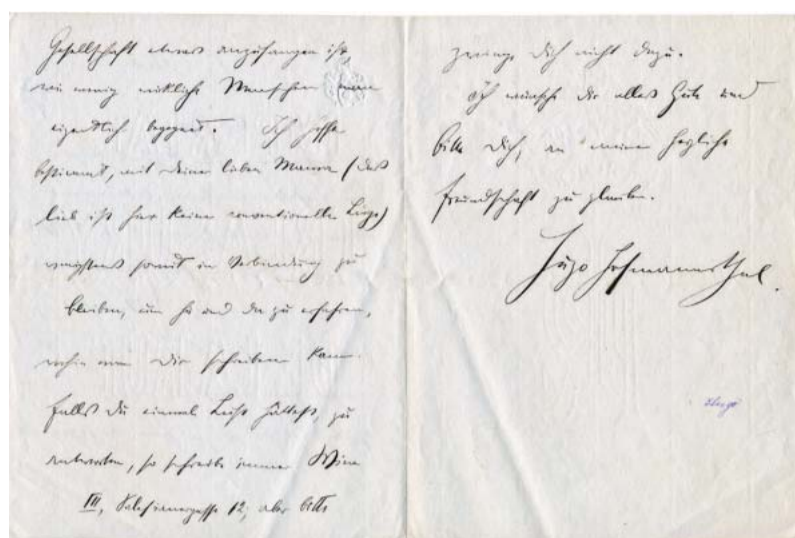 Gesellschaft etwas anzufangen ist,
wie wenig wirkliche Menschen man
eigentlich begegnet. Ich hoffe
bestimmt, mit Deiner lieben Mama (das
lieb ist hier keine conventionelle Lüge)
wenigstens soweit in Verbindung zu
bleiben, um hie und da zu erfahren,
wohin man Dir schreiben kann.
Falls Du einmal Lust hättest, zu
antworten, so schreibe immer Wien
III, Salesianergasse 12, aber bitte
zwinge Dich nicht dazu.
Ich wünsche Dir alles Gute und
bitte Dich, an meine herzliche
Freundschaft zu glauben.
Hugo Hofmannsthal.
Hugo